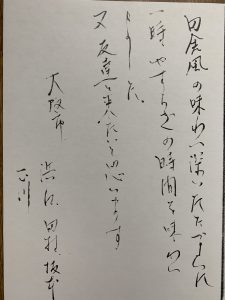 田舎風の味わい深いたたずまいに
一時、やすらぎの時間を味わい
ました。
又友達と来たいと思います
大阪市